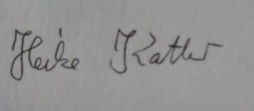 Heike Kattler